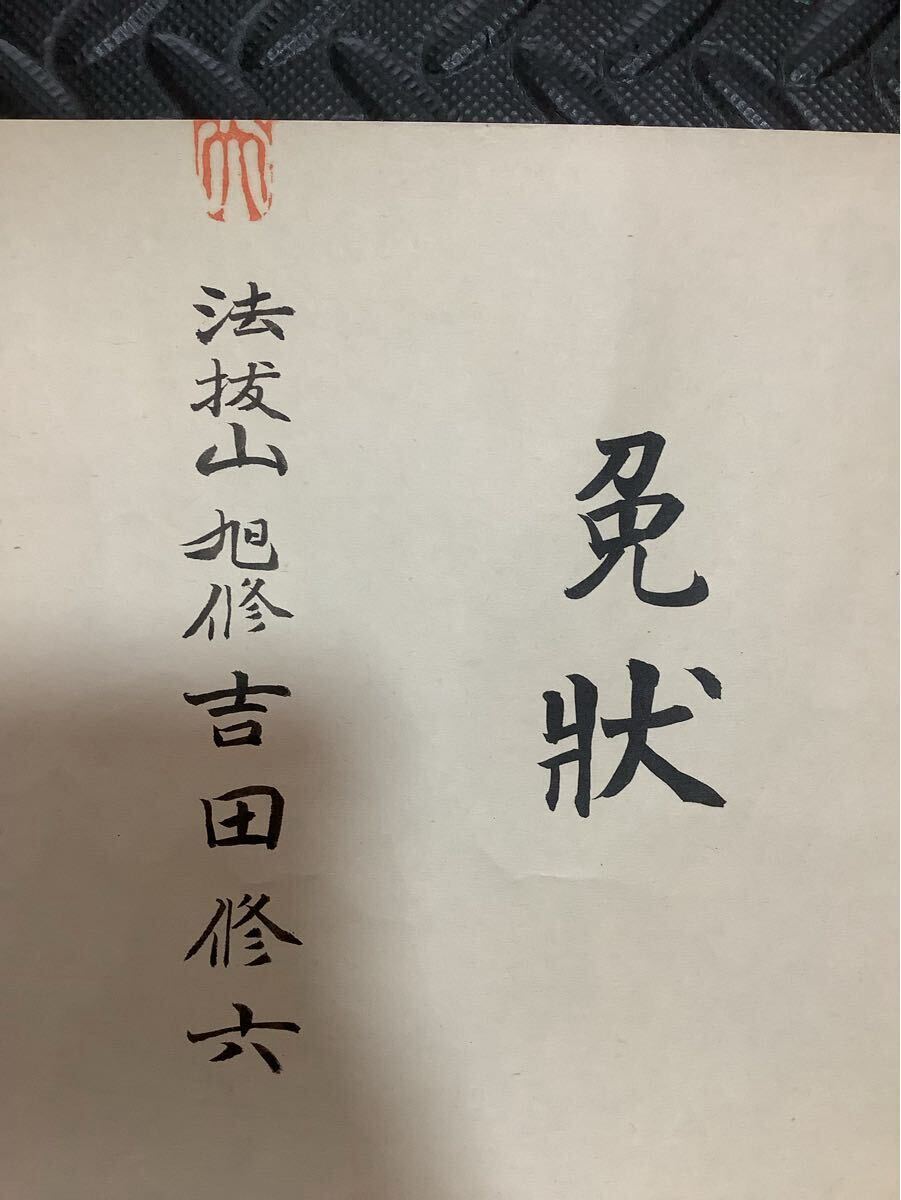 免狀
法拔山旭修吉田修六